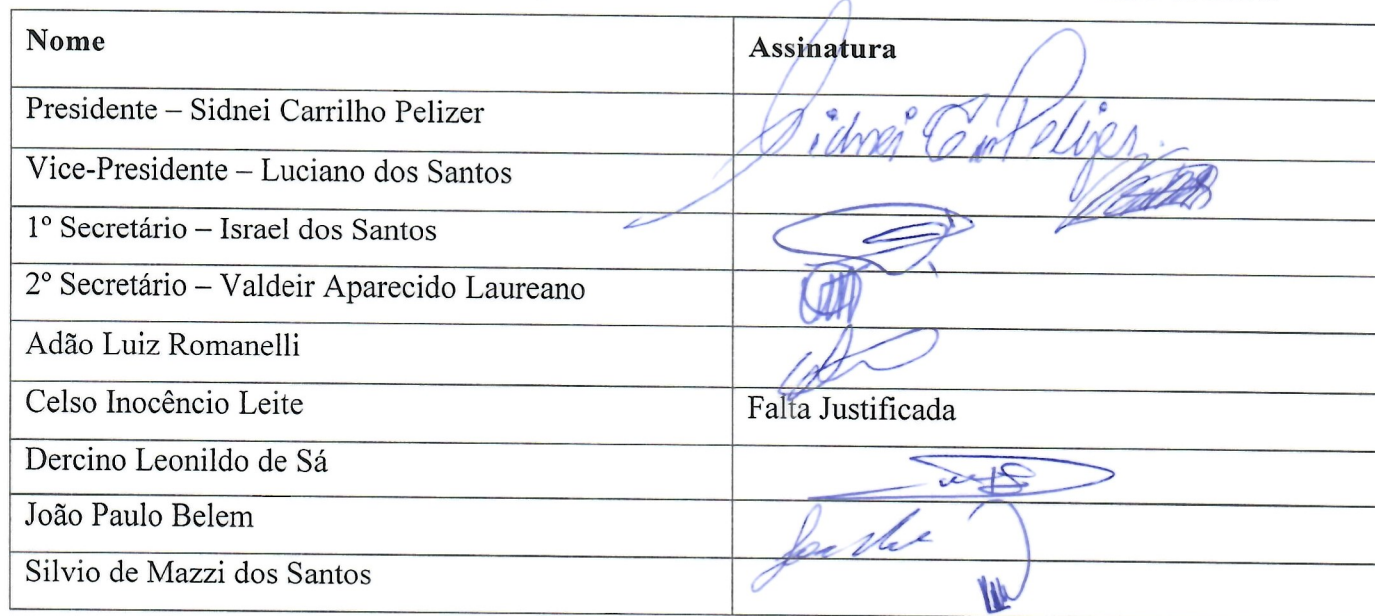 Nome Assinatura
Presidente – Sidnei Carrilho Pelizer Sidnei
Vice-Presidente – Luciano dos Santos
1º Secretário – Israel dos Santos
2º Secretário – Valdeir Aparecido Laureano
Adão Luiz Romanelli
Celso Inocêncio Leite Falta Justificada
Dercino Leonildo de Sá
João Paulo Belem
Silvio de Mazzi dos Santos